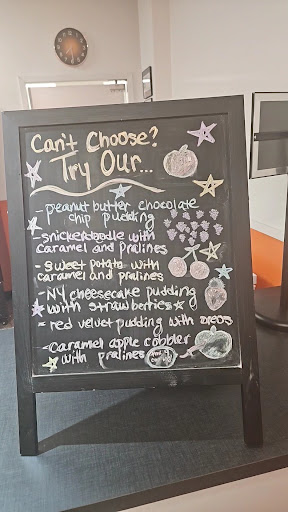 Can't Choose?
Try Our...
- peanut butter chocolate
chip pudding
- snickerdoodle with
caramel and pralines
- sweet potato with
caramel and pralines
- NY cheesecake pudding
with strawberries
- red velvet pudding with oreos
- Caramel apple cobbler
with pralines